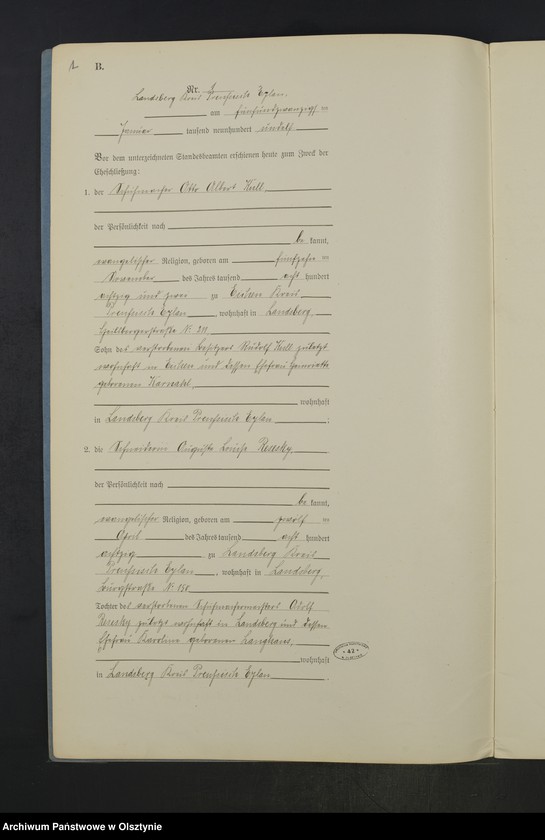 B.
Nr.
Landsberg Kreis Preussisch Eylau
am fünfundzwanzigsten
Januar tausend neunhundert undelf
Vor dem unterzeichneten Standesbeamten erschienen heute zum Zweck der
Eheschließung:
1. der Schuhmacher Otto Albert Kull
der Persönlichkeit nach
be kannt,
evangelischer Religion, geboren am fünfzehn ten
November des Jahres tausend acht hundert
achtzig und zwei zu Eichen Kreis
Preussisch Eylau, wohnhaft in Landsberg,
Heilsbergerstraße Nr. 211
Sohn des verstorbenen Besitzers Rudolf Kull zuletzt
wohnhaft in Eichen und dessen Ehefrau Henriette
geborenen
wohnhaft
in Landsberg Kreis Preussisch Eylau;
2. die Schneiderin Auguste Louise
der Persönlichkeit nach
be kannt,
evangelischer Religion, geboren am zwölf ten
April des Jahres tausend acht hundert
achtzig zu Landsberg Kreis
Preussisch Eylau, wohnhaft in Landsberg,
Burgstraße Nr.
Tochter des verstorbenen Schuhmachermeisters Adolf
zuletzt wohnhaft in Landsberg und dessen
Ehefrau Karoline geborenen Langhans,
wohnhaft
in Landsberg Kreis Preussisch Eylau.
42
Archiwum Państwowe w Olsztynie